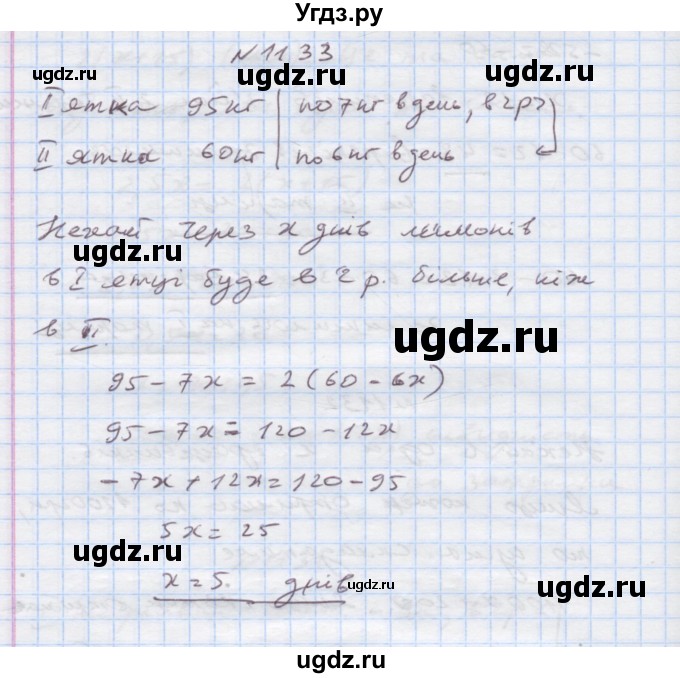 Угдз.ру
N1133
I ятка 95кг по 7кг в день, в 2р>
II ятка 60кг по 6кг в день
ugdz.ru ugdz.ru
Нехай через x днів лимонів
ugdz.ru
в I ятці буде в 2 р. більше, ніж
в II.
ugdz.ru
95 - 7x = 2(60 - 6x)
ugdz.ru
95 - 7x = 120 - 12x
- 7x + 12x = 120 - 95
ugdz.ru
5x = 25
ugdz.ru
x = 5. днів
ugdz.ru
ugdz.ru